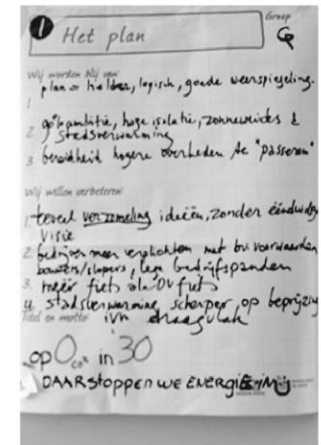 1 Het plan
Groep
G
Wij worden blij van
1 plan = helder, logisch, goede weerspiegeling.
2 ambitie, hoge isolatie, zonneweides &
stadsverwarming
3 bereidheid hogere overheden te "passeren"
Wij willen verbeteren
1. teveel verzameling ideeën, zonder éénduidige
visie
2. bedrijven meer verplichten met bv voorwaarden
bouwers/slopers, lege bedrijfspanden
3. meer fiets ala OV fiets
4. stadsverwarming scherper op beprijzing
Titel en motto ivm draagvlak
op 0 CO2 in 30
DAAR STOPPEN WE ENERGIE IN!